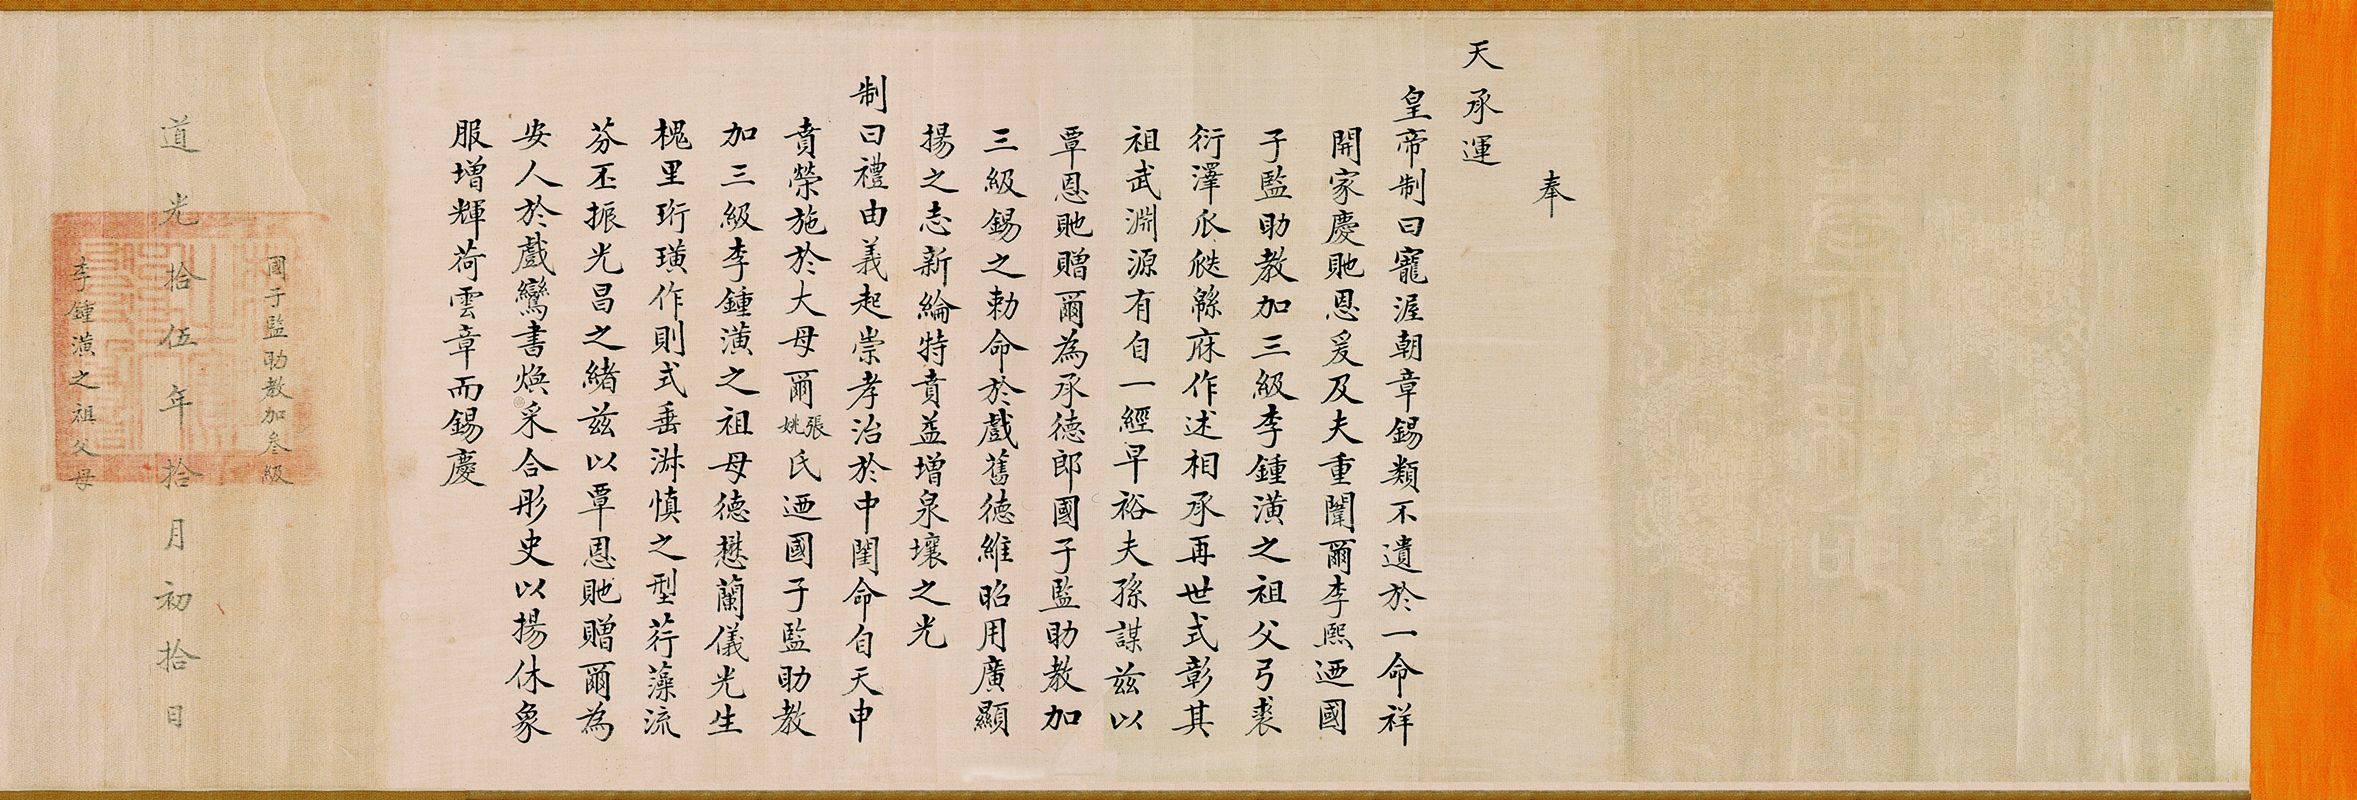 奉
天承運
皇帝制曰寵渥朝章錫類不遺於一命祥
開家慶貤恩爰及夫重闈爾李熙迺國
子監助教加三級李鍾潢之祖父弓裘
衍澤瓜瓞緜庥作述相承再世式彰其
祖武淵源有自一經早裕夫孫謀茲以
覃恩貤贈爾為承德郎國子監助教加
三級錫之勅命於戲舊德維昭用廣顯
揚之志新綸特賁益增泉壤之光
制曰禮由義起崇孝治於中閨命自天申
賁榮施於大母爾張姚氏迺國子監助教
加三級李鍾潢之祖母德懋蘭儀光生
槐里珩璜作則式垂淋慎之型荇藻流
芬丕振光昌之緒茲以覃恩貤贈爾為
安人於戲鸞書煥采合彤史以揚休象
服增輝荷雲章而錫慶
國子監助教加叁級
道光拾伍年拾月初拾日
李鍾潢之祖父母